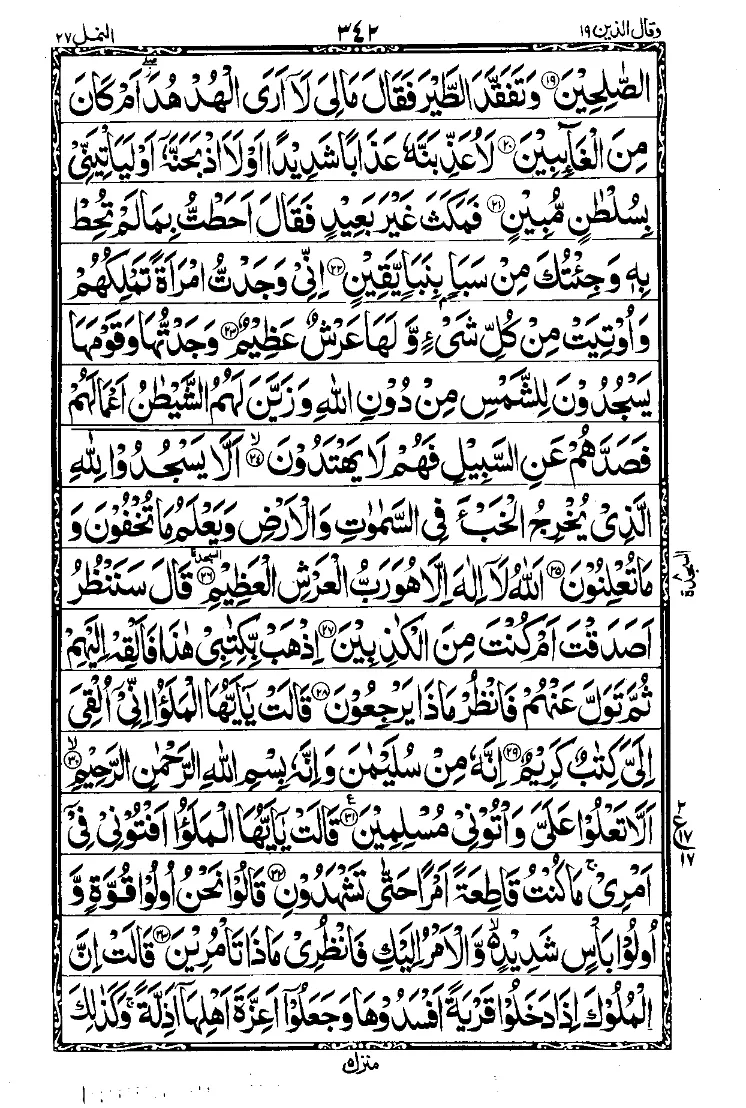 وقال الذين ١٩ ٣٤٢ النمل ٢٧
الصّٰلِحِیْنَ ﴿١٩﴾ وَتَفَقَّدَ الطَّیْرَ فَقَالَ مَالِیَ لَاۤ اَرَی الْهُدْهُدَ ۖ اَمْ كَانَ
مِنَ الْغَآئِبِیْنَ ﴿٢٠﴾ لَاُعَذِّبَنَّهٗ عَذَابًا شَدِیْدًا اَوْ لَاۡاَذْبَحَنَّهٗۤ اَوْ لَیَاْتِیَنِّیْ
بِسُلْطٰنٍ مُّبِیْنٍ ﴿٢١﴾ فَمَكَثَ غَیْرَ بَعِیْدٍ فَقَالَ اَحَطْتُّ بِمَا لَمْ تُحِطْ
بِهٖ وَجِئْتُكَ مِنْ سَبَاٍۭ بِنَبَاٍ یَّقِیْنٍ ﴿٢٢﴾ اِنِّیْ وَجَدْتُّ امْرَاَةً تَمْلِكُهُمْ
وَاُوْتِیَتْ مِنْ كُلِّ شَیْءٍ وَّلَهَا عَرْشٌ عَظِیْمٌ ﴿٢٣﴾ وَجَدْتُّهَا وَقَوْمَهَا
یَسْجُدُوْنَ لِلشَّمْسِ مِنْ دُوْنِ اللّٰهِ وَزَیَّنَ لَهُمُ الشَّیْطٰنُ اَعْمَالَهُمْ
فَصَدَّهُمْ عَنِ السَّبِیْلِ فَهُمْ لَا یَهْتَدُوْنَ ﴿٢٤﴾ۙ اَلَّا یَسْجُدُوْا لِلّٰهِ
الَّذِیْ یُخْرِجُ الْخَبْءَ فِی السَّمٰوٰتِ وَالْاَرْضِ وَیَعْلَمُ مَا تُخْفُوْنَ وَ
مَا تُعْلِنُوْنَ ﴿٢٥﴾ اَللّٰهُ لَاۤ اِلٰهَ اِلَّا هُوَ رَبُّ الْعَرْشِ الْعَظِیْمِ ﴿٢٦﴾ السجدة قَالَ سَنَنْظُرُ
السجدة
اَصَدَقْتَ اَمْ كُنْتَ مِنَ الْكٰذِبِیْنَ ﴿٢٧﴾ اِذْهَبْ بِّكِتٰبِیْ هٰذَا فَاَلْقِهْ اِلَیْهِمْ
ثُمَّ تَوَلَّ عَنْهُمْ فَانْظُرْ مَاذَا یَرْجِعُوْنَ ﴿٢٨﴾ قَالَتْ یٰۤاَیُّهَا الْمَلَؤُا اِنِّیْۤ اُلْقِیَ
اِلَیَّ كِتٰبٌ كَرِیْمٌ ﴿٢٩﴾ اِنَّهٗ مِنْ سُلَیْمٰنَ وَاِنَّهٗ بِسْمِ اللّٰهِ الرَّحْمٰنِ الرَّحِیْمِ ﴿٣٠﴾ۙ
اَلَّا تَعْلُوْا عَلَیَّ وَاْتُوْنِیْ مُسْلِمِیْنَ ﴿٣١﴾ ع قَالَتْ یٰۤاَیُّهَا الْمَلَؤُا اَفْتُوْنِیْ فِیْۤ
٢ ع ١٧ ١٧
اَمْرِیْ ۚ مَا كُنْتُ قَاطِعَةً اَمْرًا حَتّٰی تَشْهَدُوْنِ ﴿٣٢﴾ قَالُوْا نَحْنُ اُولُوْا قُوَّةٍ وَّ
اُولُوْا بَاْسٍ شَدِیْدٍ ۙ۬ وَّالْاَمْرُ اِلَیْكِ فَانْظُرِیْ مَاذَا تَاْمُرِیْنَ ﴿٣٣﴾ قَالَتْ اِنَّ
الْمُلُوْكَ اِذَا دَخَلُوْا قَرْیَةً اَفْسَدُوْهَا وَجَعَلُوْۤا اَعِزَّةَ اَهْلِهَاۤ اَذِلَّةً ۚ وَكَذٰلِكَ
منزل ٥